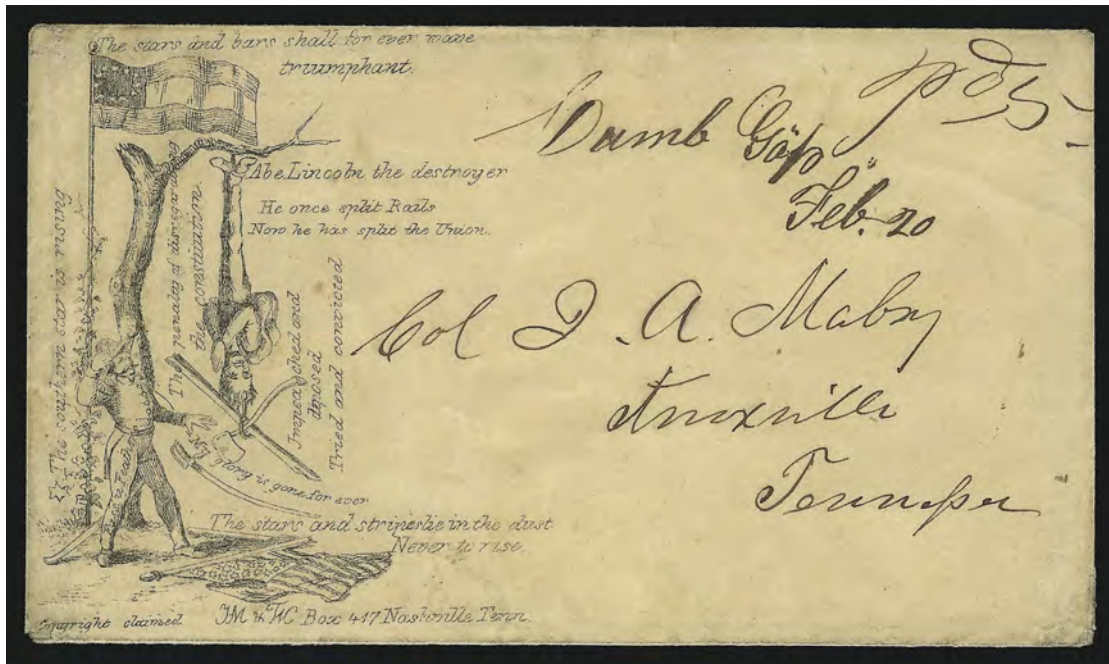 The stars and bars shall for ever wave
triumphant.
Abe Lincoln the destroyer
He once split Rails
Now he has split the Union.
The southern star is rising
The penalty of disregarding
the constitution.
Impeached and
diposed
Tried and convicted
My glory is gone for ever
The stars and stripes lie in the dust
Never to rise.
Copyright claimed
JM & HC Box 417 Nashville Tenn.
pd 5
Cumb Gap
Feb. 20
Col J. A. Mabry
Knoxville
Tennessee